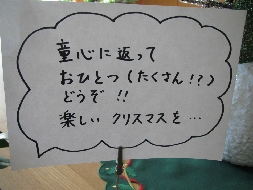 童心に返って
おひとつ(たくさん!?)
どうぞ!!
楽しい クリスマスを…